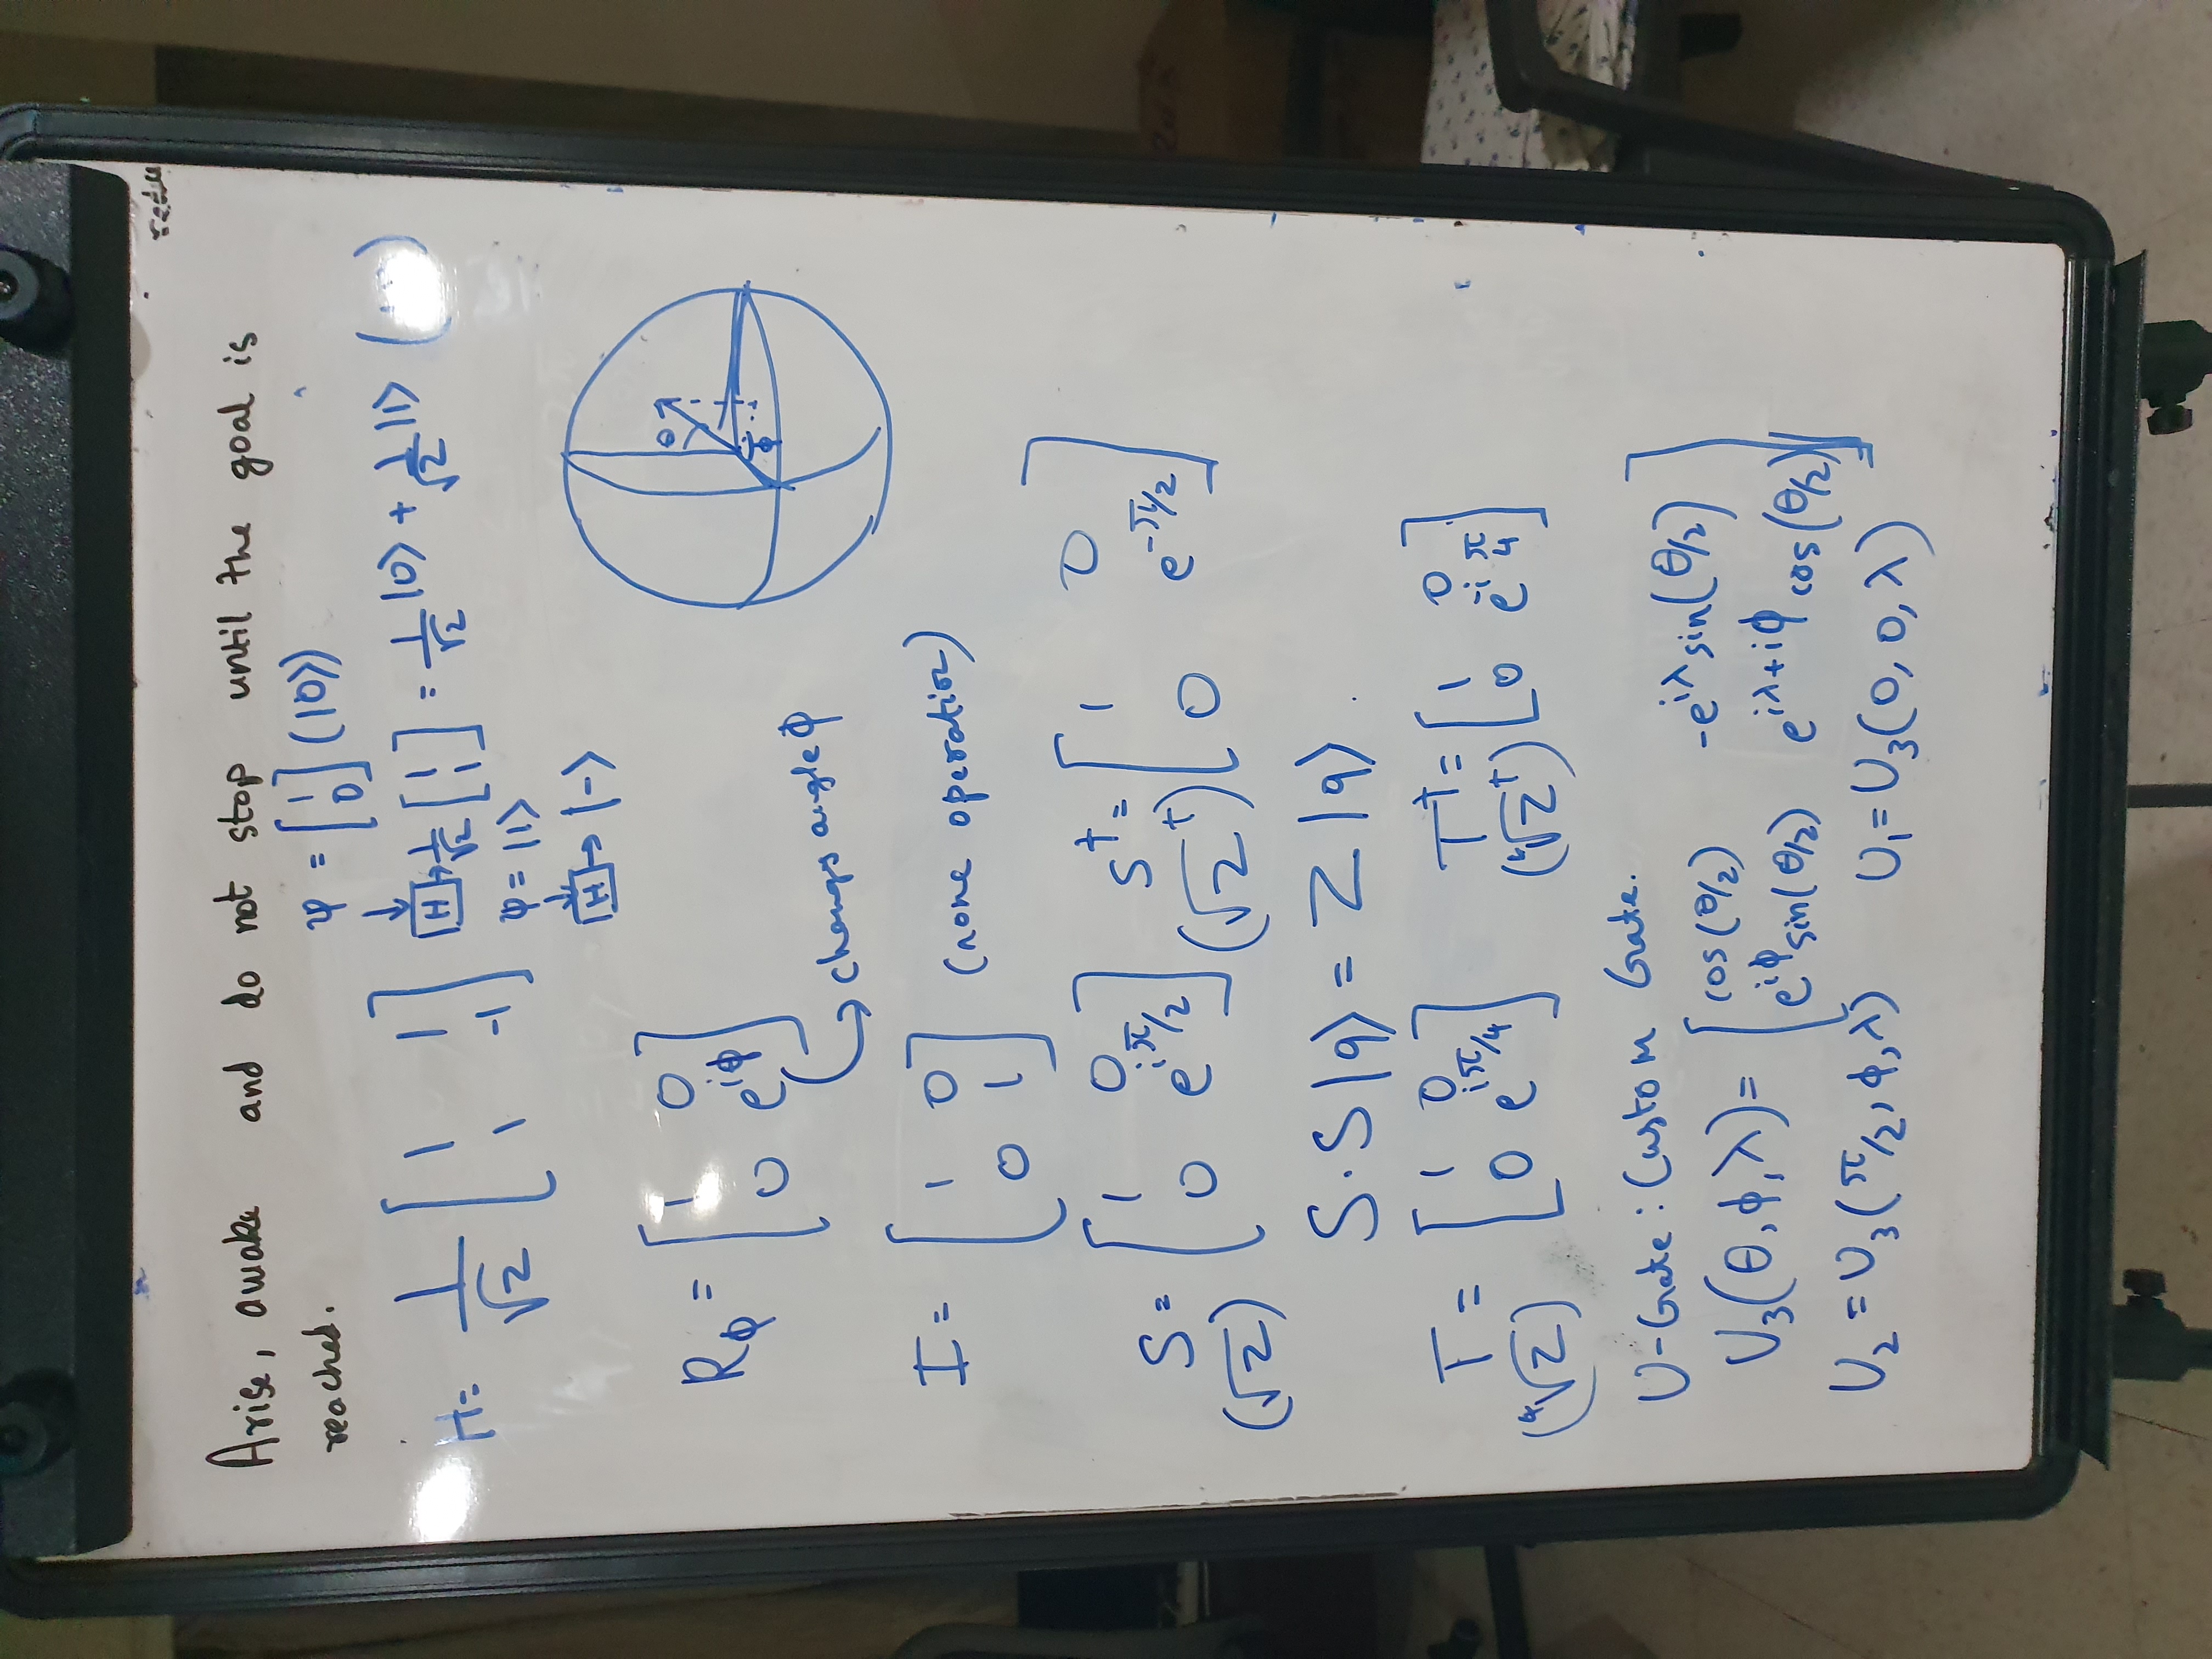 Arise, awake and do not stop until the goal is
reached.
ψ = [1 0] (|0⟩)
H = 1/√2 [1 1; 1 -1]
H → 1/√2 [1 1] = 1/√2 |0⟩ + 1/√2 |1⟩
ψ = |1⟩
H → |-⟩
Rϕ = [1 0; 0 e^{iϕ}]
changes angle ϕ
θ
ϕ
I = [1 0; 0 1] (none operation)
S = [1 0; 0 e^{iπ/2}] S† = [1 0; 0 e^{-π/2}]
(√Z) (√Z†)
S·S|q⟩ = Z|q⟩.
T = [1 0; 0 e^{iπ/4}] T† = [1 0; 0 e^{-iπ/4}]
(⁴√Z) (⁴√Z†)
U-Gate: Custom Gate.
U₃(θ, ϕ, λ) = [cos(θ/2) -e^{iλ}sin(θ/2); e^{iϕ}sin(θ/2) e^{iλ+iϕ}cos(θ/2)]
U₂ = U₃(π/2, ϕ, λ) U₁ = U₃(0, 0, λ)